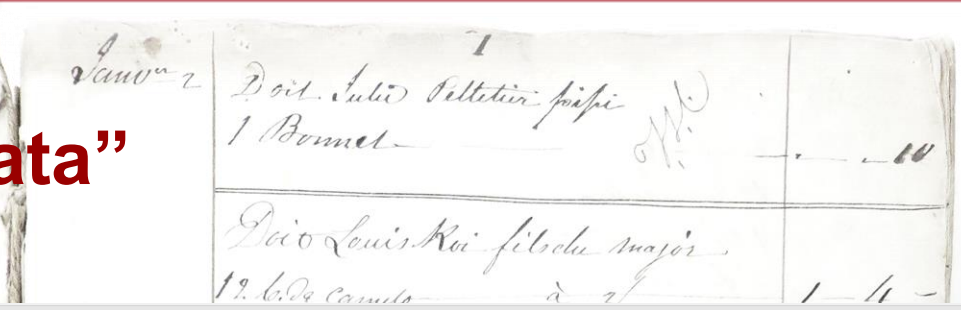 1
Janvr 2
Doit Julie Pelletier
1 Bonnet 10
ata”
Doit Louis Roi fils du major
12 à 1 4